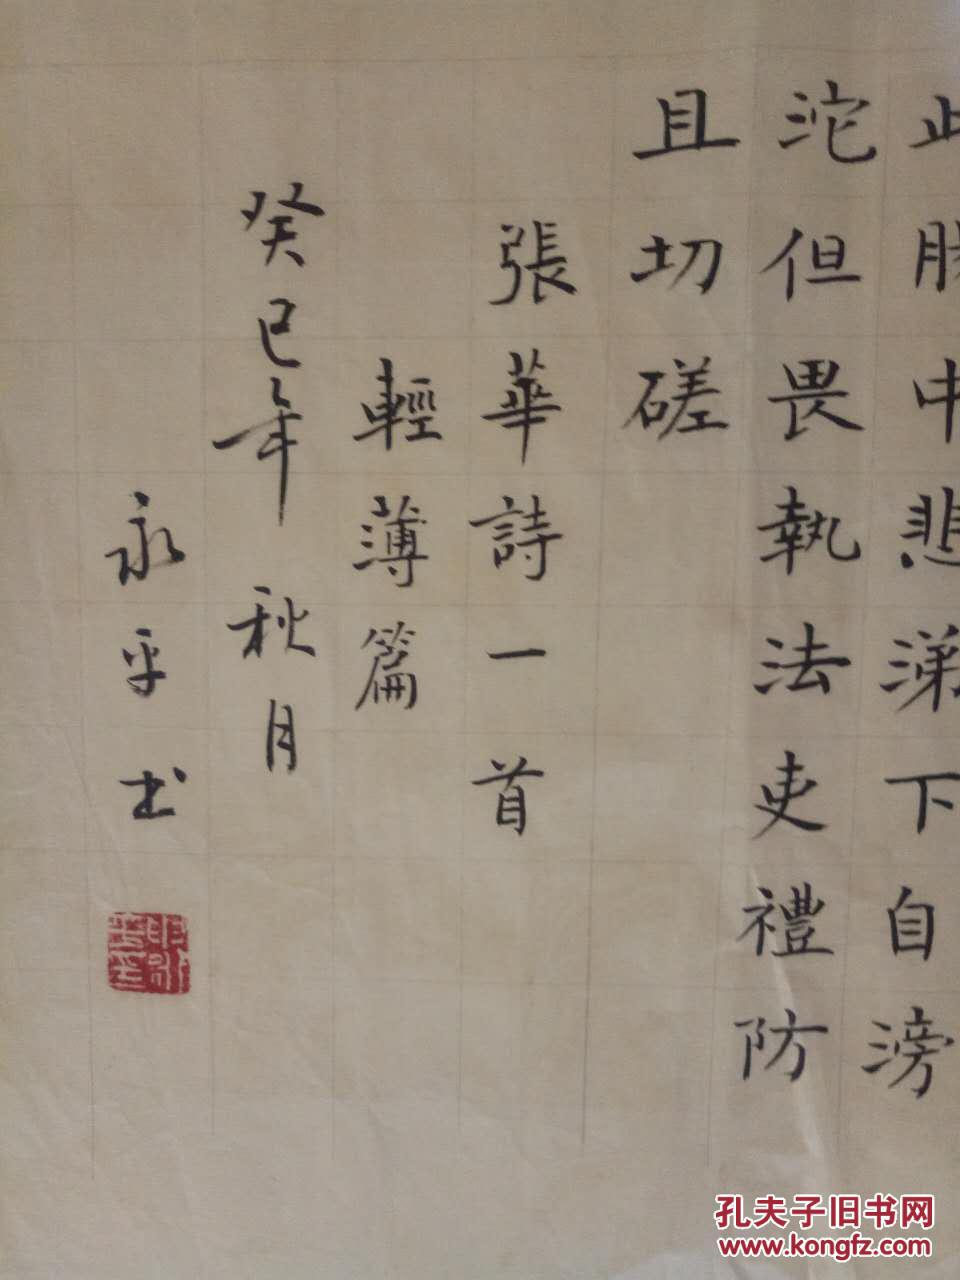 此勝中悲涕下自滂
沱但畏執法吏禮防
且切磋
張華詩一首
輕薄篇
癸巳年 秋月
永平书
孔夫子旧书网
www.kongfz.com